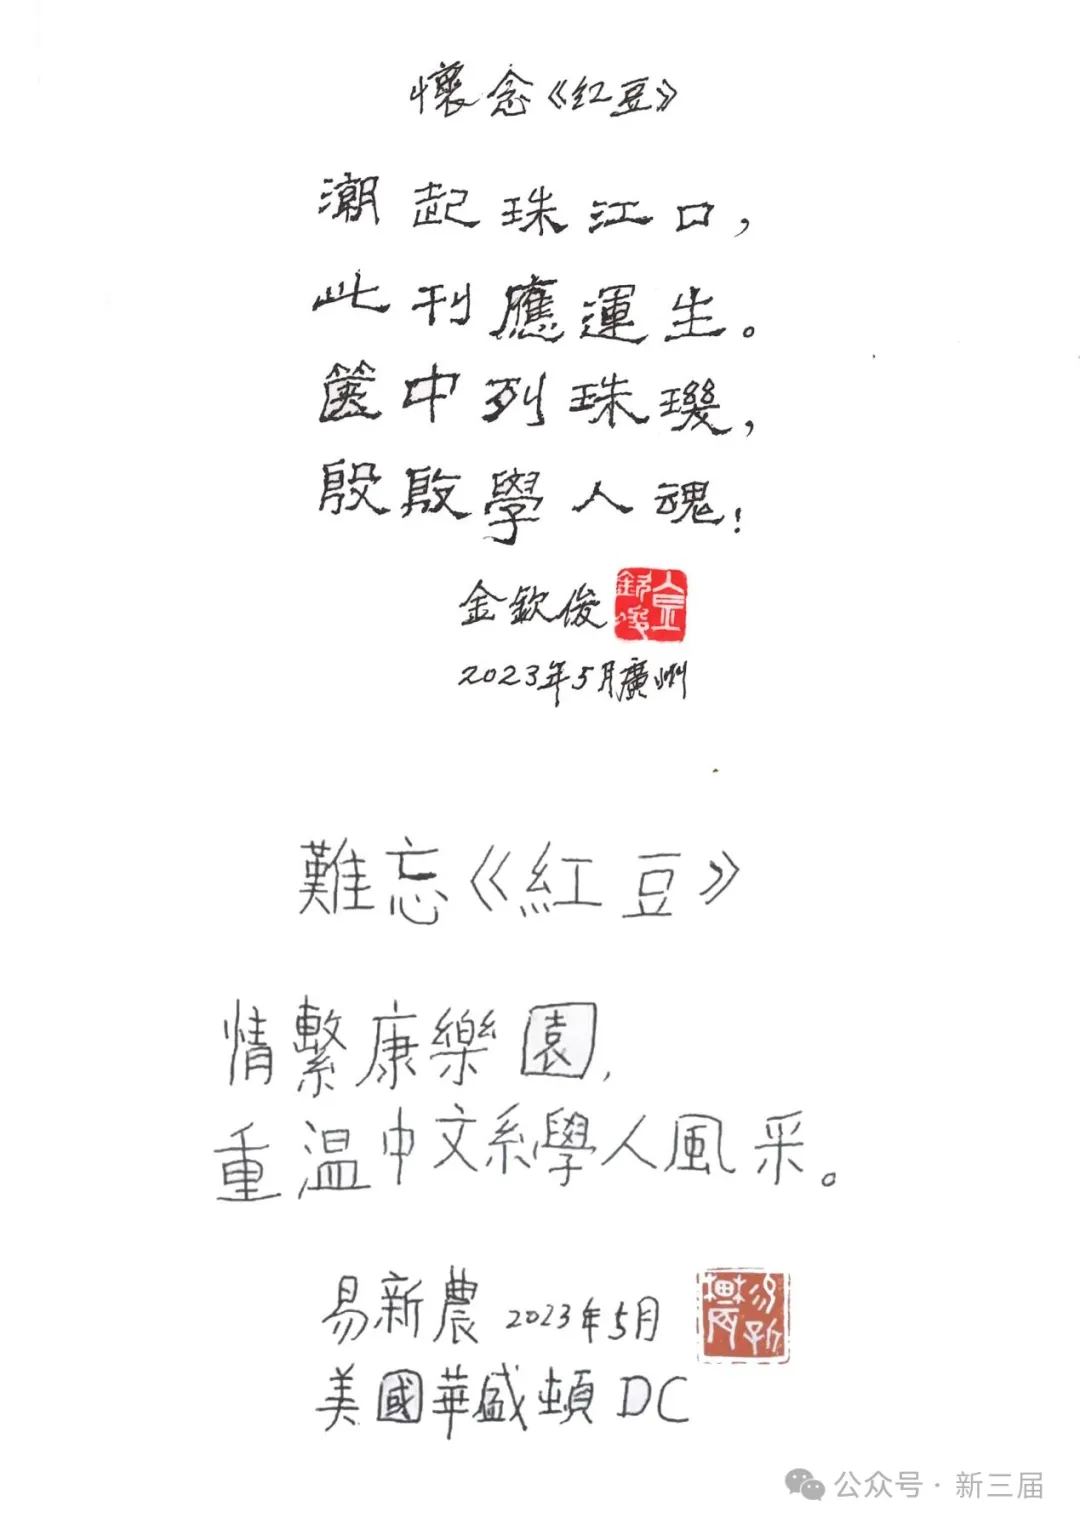 懷念《紅豆》
潮起珠江口，
此刊應運生。
篋中列珠璣，
殷殷學人魂！
金欽俊
金欽俊
2023年5月廣州
難忘《紅豆》
情繫康樂園，
重温中文系學人風采。
易新農 2023年5月
易新農
美國華盛頓DC
公众号·新三届